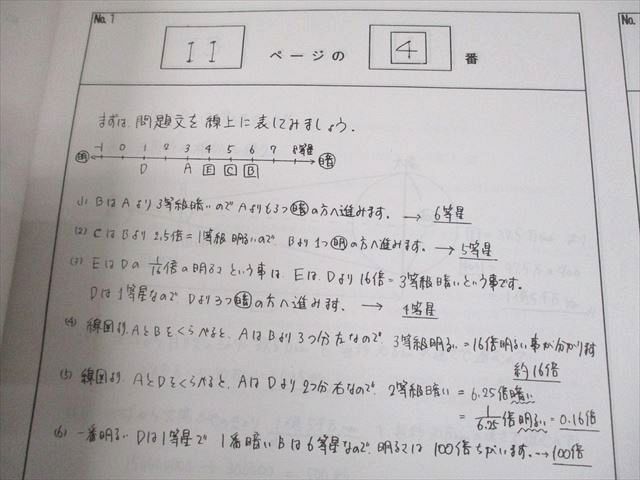 No. 1
11 ページの 4 番
まずは、問題文を線上に表してみましょう。
-1 0 1 2 3 4 5 6 7 8等星
明 D A E C B 暗
(1) BはAより3等級暗いのでAよりも3つ暗の方へ進みます。→ 6等星
(2) CはBより2.5倍=1等級明るいので、Bより1つ明の方へ進みます。→ 5等星
(3) EはDの1/16倍の明るさという事は、Eは、Dより16倍=3等級暗いという事です。
Dは1等星なのでDより3つ暗の方へ進みます。→ 4等星
(4) 線図より、AとBをくらべると、AはBより3つ分左なので、3等級明るい=16倍明るい事が分かります
約16倍
(5) 線図より、AとDをくらべると、AはDより2つ分右なので、2等級暗い=6.25倍暗い
=1/6.25倍明るい=0.16倍
(6) 一番明るいDは1等星で1番暗いBは6等星なので、明るさは100倍ちがいます。→100倍
No.